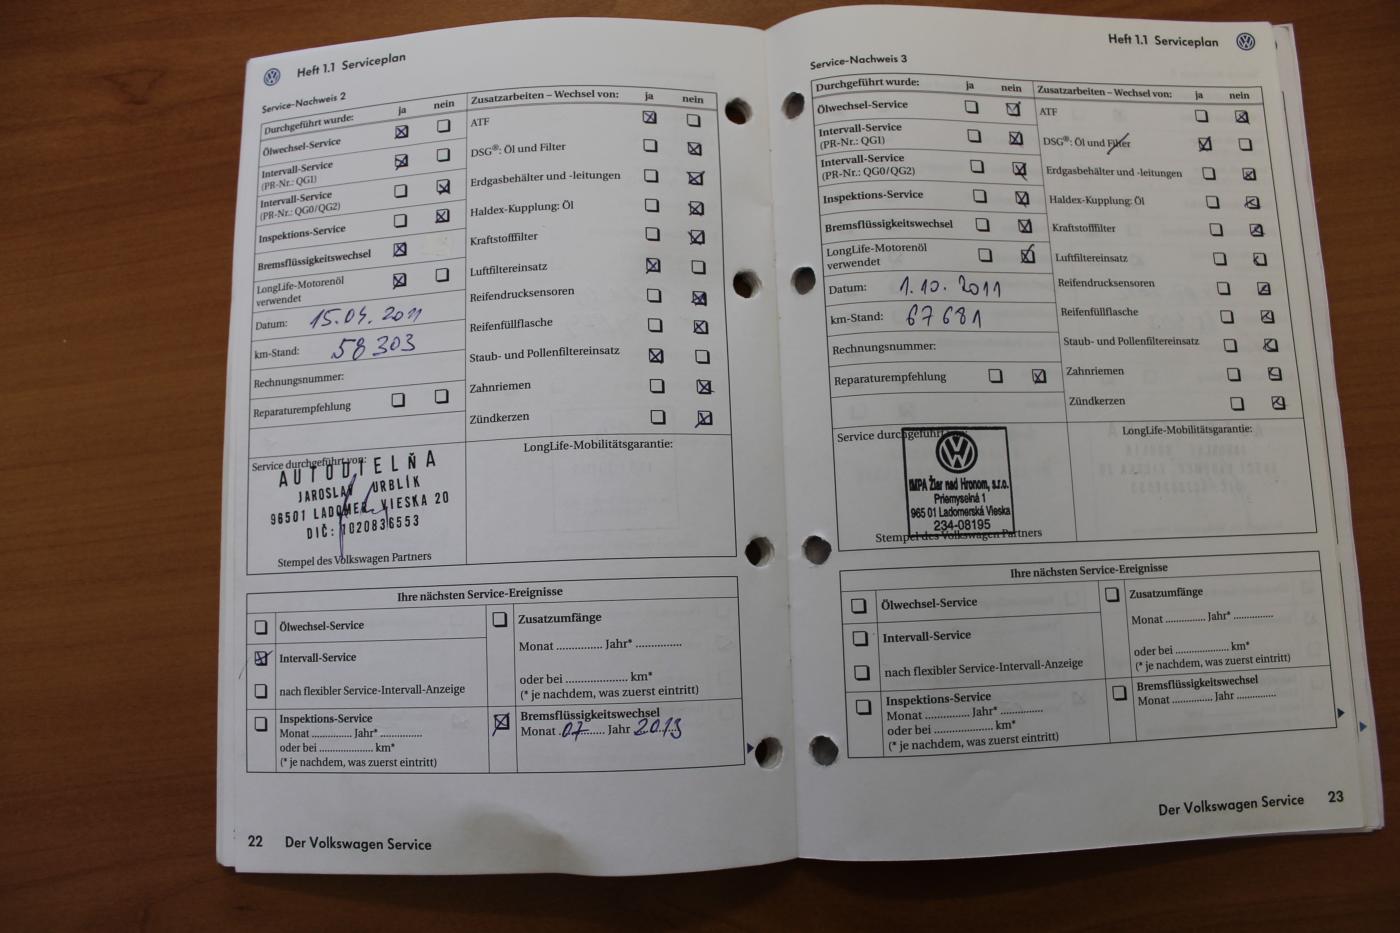 Heft 1.1 Serviceplan
Service-Nachweis 2
Durchgeführt wurde: ja nein
Ölwechsel-Service
Intervall-Service
(PR-Nr.: QG1)
Intervall-Service
(PR-Nr.: QG0/QG2)
Inspektions-Service
Bremsflüssigkeitswechsel
LongLife-Motorenöl
verwendet
Datum: 15.04.2011
km-Stand: 58 303
Rechnungsnummer:
Reparaturempfehlung
Zusatzarbeiten – Wechsel von: ja nein
ATF
DSG®: Öl und Filter
Erdgasbehälter und -leitungen
Haldex-Kupplung: Öl
Kraftstofffilter
Luftfiltereinsatz
Reifendrucksensoren
Reifenfüllflasche
Staub- und Pollenfiltereinsatz
Zahnriemen
Zündkerzen
Service durchgeführt von:
AUTODIELŇA
JAROSLAV URBLÍK
96501 LADOMER. VIESKA 20
DIČ: 1020836553
Stempel des Volkswagen Partners
LongLife-Mobilitätsgarantie:
Ihre nächsten Service-Ereignisse
Ölwechsel-Service
Intervall-Service
nach flexibler Service-Intervall-Anzeige
Inspektions-Service
Monat ............ Jahr* ............
oder bei ................ km*
(* je nachdem, was zuerst eintritt)
Zusatzumfänge
Monat ............ Jahr* ............
oder bei ................ km*
(* je nachdem, was zuerst eintritt)
Bremsflüssigkeitswechsel
Monat 07 Jahr 2013
22 Der Volkswagen Service
Heft 1.1 Serviceplan
Service-Nachweis 3
Durchgeführt wurde: ja nein
Ölwechsel-Service
Intervall-Service
(PR-Nr.: QG1)
Intervall-Service
(PR-Nr.: QG0/QG2)
Inspektions-Service
Bremsflüssigkeitswechsel
LongLife-Motorenöl
verwendet
Datum: 1.10.2011
km-Stand: 67681
Rechnungsnummer:
Reparaturempfehlung
Zusatzarbeiten – Wechsel von: ja nein
ATF
DSG®: Öl und Filter
Erdgasbehälter und -leitungen
Haldex-Kupplung: Öl
Kraftstofffilter
Luftfiltereinsatz
Reifendrucksensoren
Reifenfüllflasche
Staub- und Pollenfiltereinsatz
Zahnriemen
Zündkerzen
Service durchgeführt von:
IMPA Žiar nad Hronom, s.r.o.
Priemyselná 1
965 01 Ladomerská Vieska
234-08195
Stempel des Volkswagen Partners
LongLife-Mobilitätsgarantie:
Ihre nächsten Service-Ereignisse
Ölwechsel-Service
Intervall-Service
nach flexibler Service-Intervall-Anzeige
Inspektions-Service
Monat ............ Jahr* ............
oder bei ................ km*
(* je nachdem, was zuerst eintritt)
Zusatzumfänge
Monat ............ Jahr* ............
oder bei ................ km*
(* je nachdem, was zuerst eintritt)
Bremsflüssigkeitswechsel
Monat ............ Jahr ............
Der Volkswagen Service 23